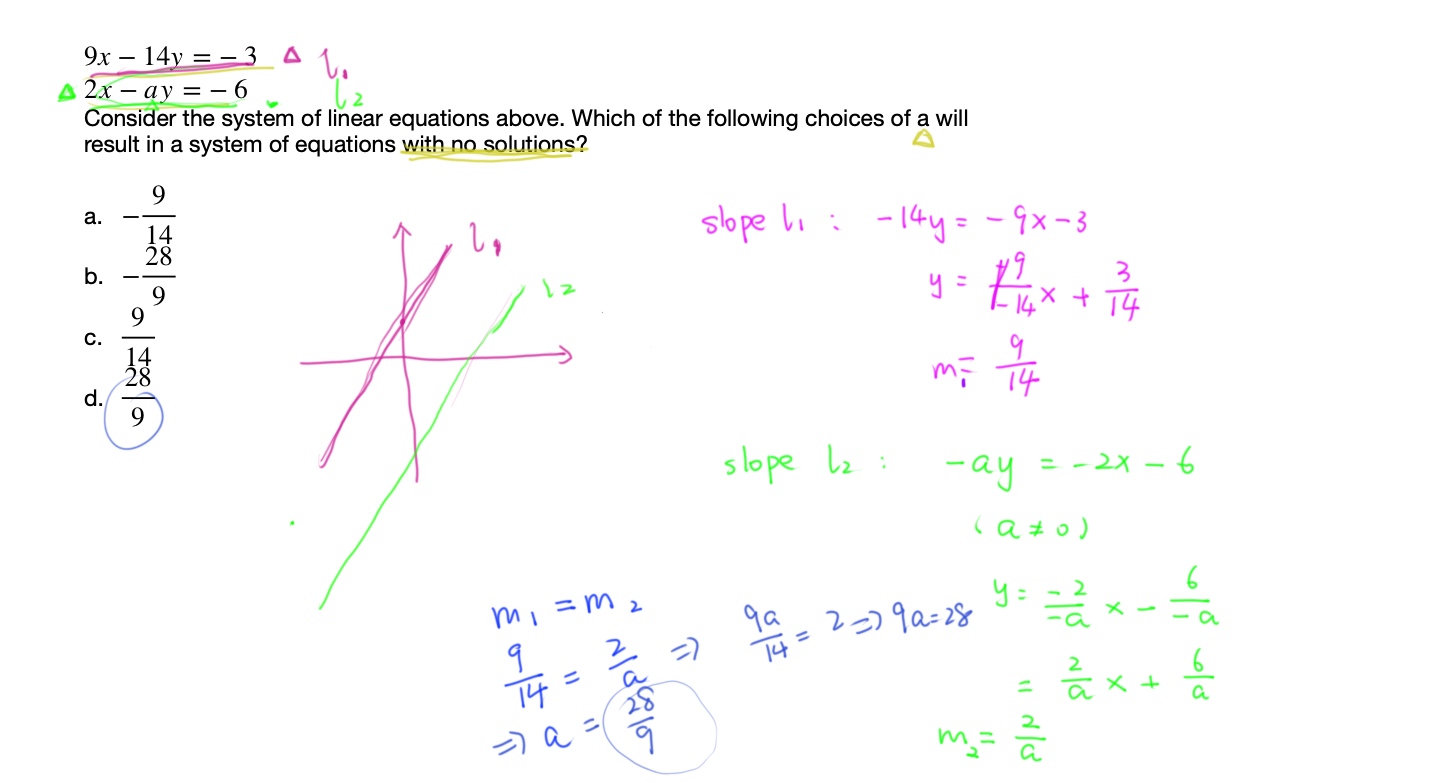 9x – 14y = – 3 Δ l₁
Δ 2x – ay = – 6 l₂
Consider the system of linear equations above. Which of the following choices of a will
result in a system of equations with no solutions?
a. –9/14
b. –28/9
c. 9/14
d. 28/9
l₁
l₂
slope l₁ : -14y = -9x-3
y = -9/-14 x + 3/14
m₁= 9/14
slope l₂ : -ay = -2x - 6
(a ≠ 0)
y = -2/-a x - 6/-a
= 2/a x + 6/a
m₂ = 2/a
m₁ = m₂
9/14 = 2/a ⇒ 9a/14 = 2 ⇒ 9a=28
⇒ a = 28/9